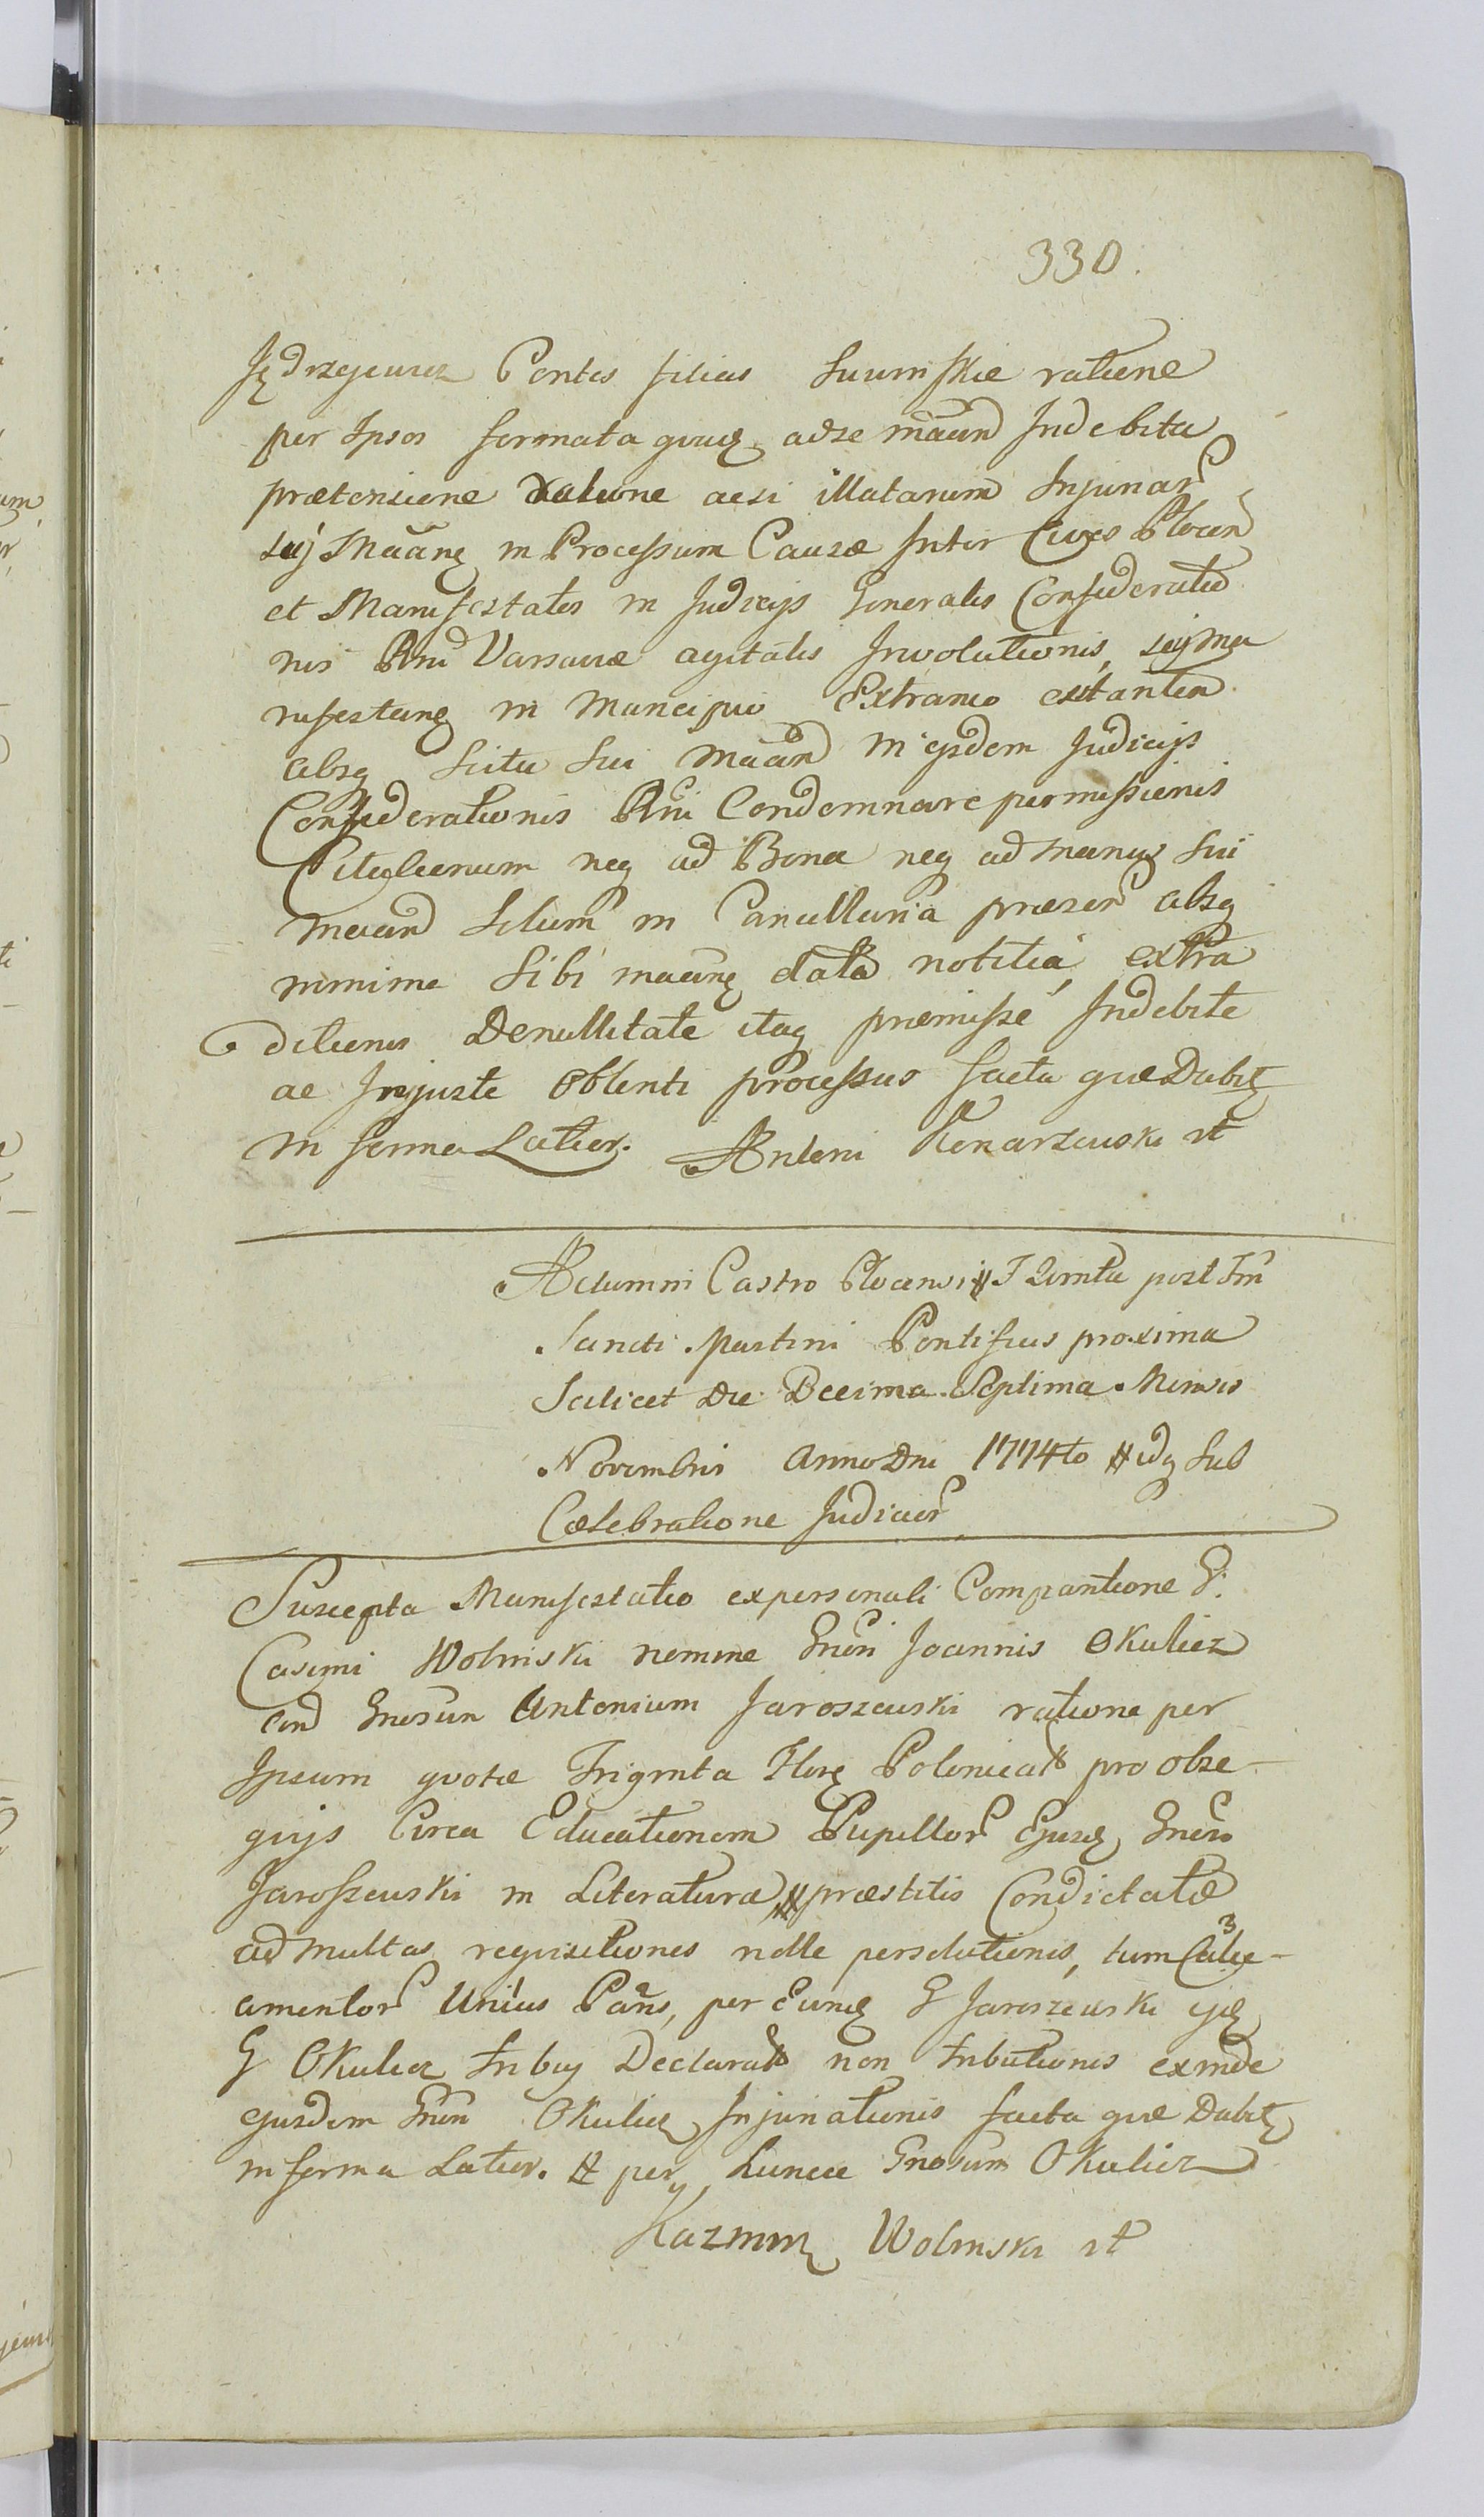 330.
Jędrzejewicz Contes filias Suumskie ratione
per Ipsos formata quaeq adse maan̄d Indebita
prætensione ratione acsi illatarum Injuriar
suj Mãanę in Processum Causæ Inter Cives Plocen
et Manifestates in Judicijs Generalis Confideratio
nis Rni Varsaviæ agitatis Involutionis, seyma
nifestanę in Mancipio Extraneo extanten
absq Scitu Sui maãnd in ejsdem Judicijs
Confiderationis Rni Condemnare permissionis
neq ad Bona neq ad manus Sui
maand Solum in Cancellaria præsen absq
minime Sibi maanę data notitia, extra
ditionis Denullitate itaq præmisse Indebite
ac Injuste Obtenti processus facta quæ Dabit
in forma Latior. Antoni Konarzewski rt
Actum in Castro Plocensi F Quinta post Fm
Sancti Martini Pontificis proxima
Scilicet Die Decima Septima Mensis
Novembris Anno Dni 1774to idq Sub
Cœlebratione Judicior
Suscepta Manifestatio ex personali Comparitione G:
Casimi Wolinski nomine Gnēn Joannis Okulicz
con̄d Gnosum Antonium Jaroszewski ratione per
Ipsum quotæ Triginta Flors Polonicalō pro obse-
quijs Circa Educationem Pupillor Ejusd, Gnēn
Jaroszewski in Literatura præstitis Condictatæ
ad multas requisitiones nolle persolutionis, tum Calce-
amentor Unius Paris, per Eund G Jaroszewski ejd
G Okulicz tribuj Declarato non tributionis exinde
ejusdem Gnēn Okulicz Injuriationis facta quæ Dabit
in forma Latior. et per hunce Gnosum Okulicz
Kazmirz Wolinski rt